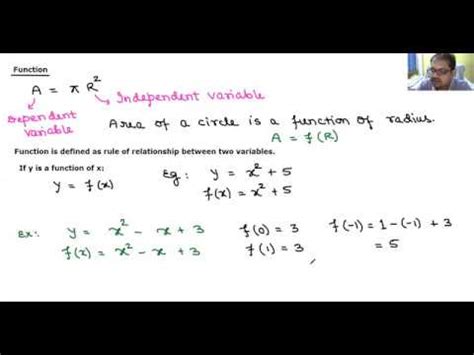 Function
A = π R²
Independent variable
Dependent variable
Area of a circle is a function of radius.
A = f(R)
Function is defined as rule of relationship between two variables.
If y is a function of x:
y = f(x)
Eg: y = x² + 5
f(x) = x² + 5
Ex: y = x² - x + 3
f(x) = x² - x + 3
f(0) = 3
f(1) = 3
f(-1) = 1 - (-1) + 3
= 5